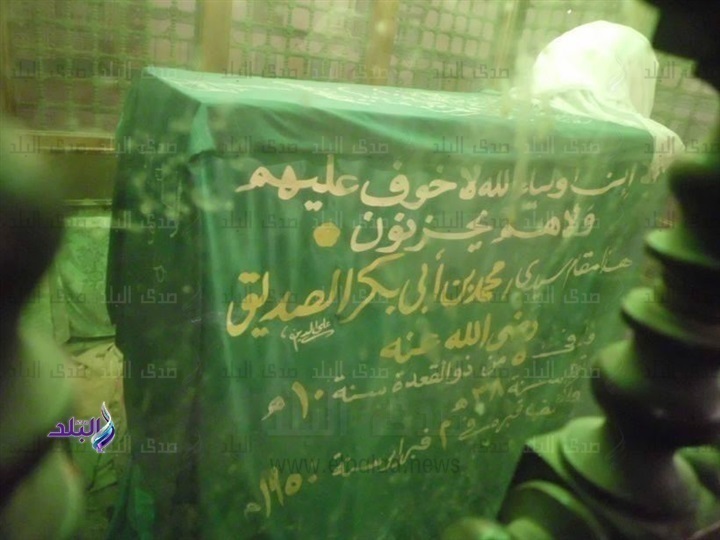 إن أولياء الله لا خوف عليهم
ولا هم يحزنون
هذا مقام سيدى محمد بن أبى بكر الصديق
رضى الله عنه
ذو القعدة سنة ١٠ هـ
سنة ٣٨ هـ
٢ فبراير سنة ١٩٥٠ م
صدى البلد
www.elbalad.news
البلد